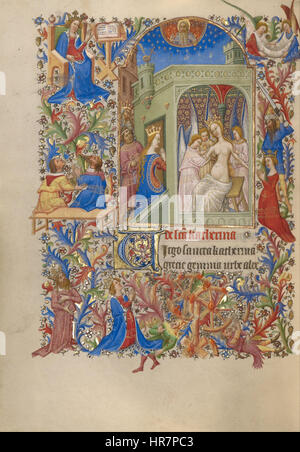 De sancta katherina
Virgo sancta katherina
grecie gemma urbe alex
alamy
HR7PC3